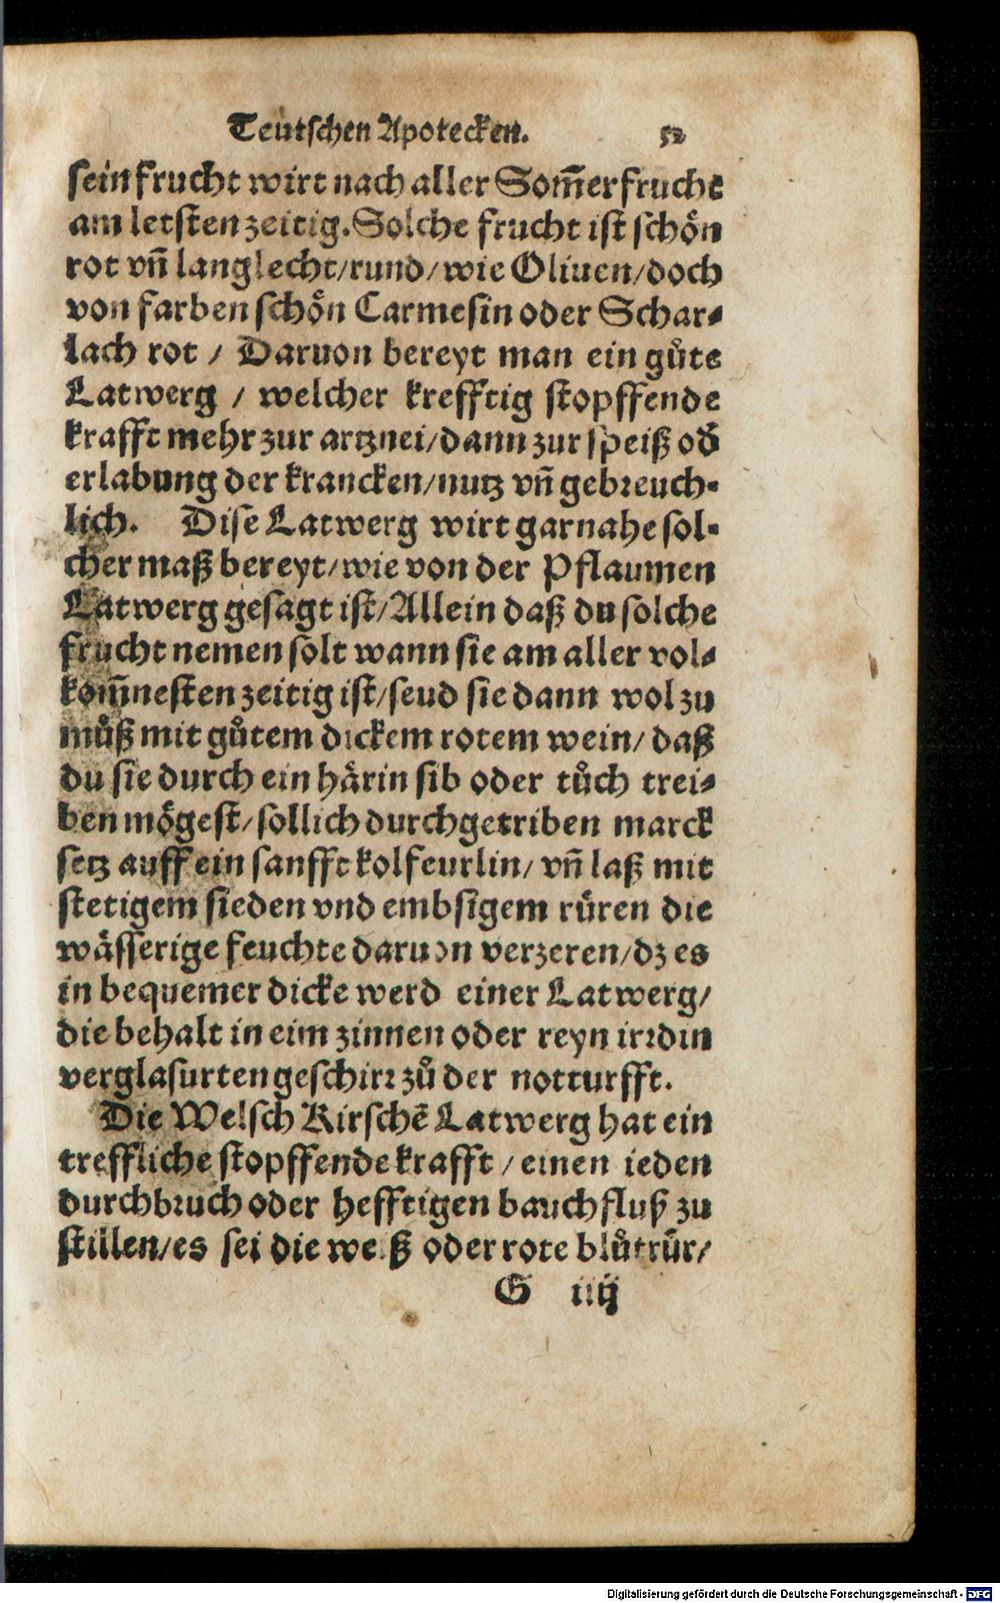 Teutschen Apotecken. 52
sein frucht wirt nach aller Som̃er frucht
am letsten zeitig. Solche frucht ist schön
rot vñ langlecht/rund/wie Oliuen/doch
von farben schön Carmesin oder Schar⸗
lach rot / Daruon bereyt man ein gůte
Latwerg / welcher krefftig stopffende
krafft mehr zur artznei/dann zur speiß od̕
erlabung der krancken/nutz vñ gebreuch⸗
lich. Dise Latwerg wirt gar nahe sol⸗
cher maß bereyt/wie von der Pflaumen
Latwerg gesagt ist/Allein daß du solche
frucht nemen solt wann sie am aller vol⸗
kom̃nesten zeitig ist/seud sie dann wol zu
můß mit gůtem dickem rotem wein/daß
du sie durch ein härin sib oder tůch trei⸗
ben mögest/sollich durchgetriben marck
setz auff ein sanfft kolfeurlin/vñ laß mit
stetigem sieden vnd embsigem rüren die
wässerige feuchte daruon verzeren/dz es
in bequemer dicke werd einer Latwerg/
die behalt in eim zinnen oder reyn irꝛdin
verglasurten geschirꝛ zů der notturfft.
Die Welsch Kirschē Latwerg hat ein
treffliche stopffende krafft / einen ieden
durchbꝛuch oder hefftigen bauchfluß zu
stillen/es sei die weiß oder rote blůtrůr/
G iiij
Digitalisierung gefördert durch die Deutsche Forschungsgemeinschaft - DFG